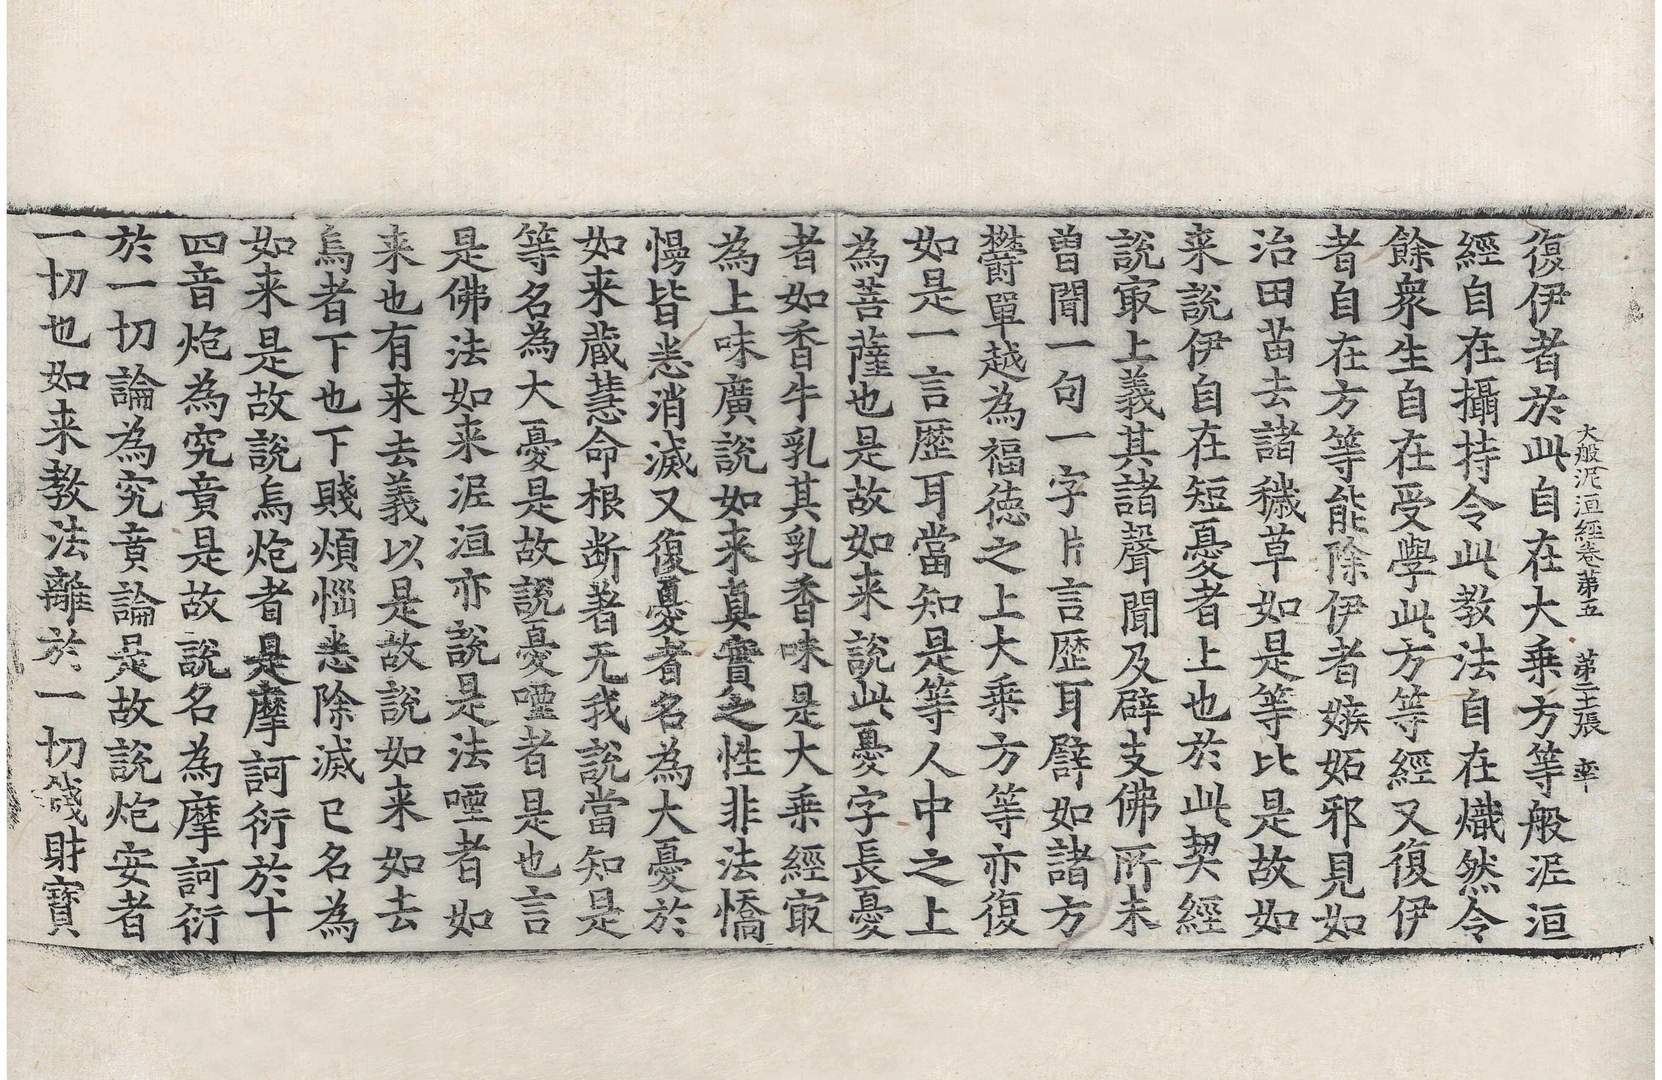 大般泥洹經卷第五　第二十張　率
復伊者於此自在大乘方等般泥洹
經自在攝持令此教法自在熾然令
餘衆生自在受學此方等經又復伊
者自在方等能除伊者嫉妬邪見如
治田苗去諸穢草如是等比是故如
来說伊自在短憂者上也於此契經
說㝡上義其諸聲聞及辟支佛所未
曽聞一句一字片言歷耳譬如諸方
欝單越為福德之上大乘方等亦復
如是一言歷耳當知是等人中之上
為菩薩也是故如来說此憂字長憂
者如香牛乳其乳香味是大乘經㝡
為上味廣說如来真實之性非法憍
慢皆悉消滅又復憂者名為大憂於
如来藏慧命根断著无我說當知是
等名為大憂是故說憂㖶者是也言
是佛法如来泥洹亦說是法㖶者如
来也有来去義以是故說如来如去
烏者下也下賤煩惱悉除滅已名為
如来是故說烏炮者是摩訶衍於十
四音炮為究竟是故說名為摩訶衍
於一切論為究竟論是故說炮安者
一切也如来教法離於一切錢財寶